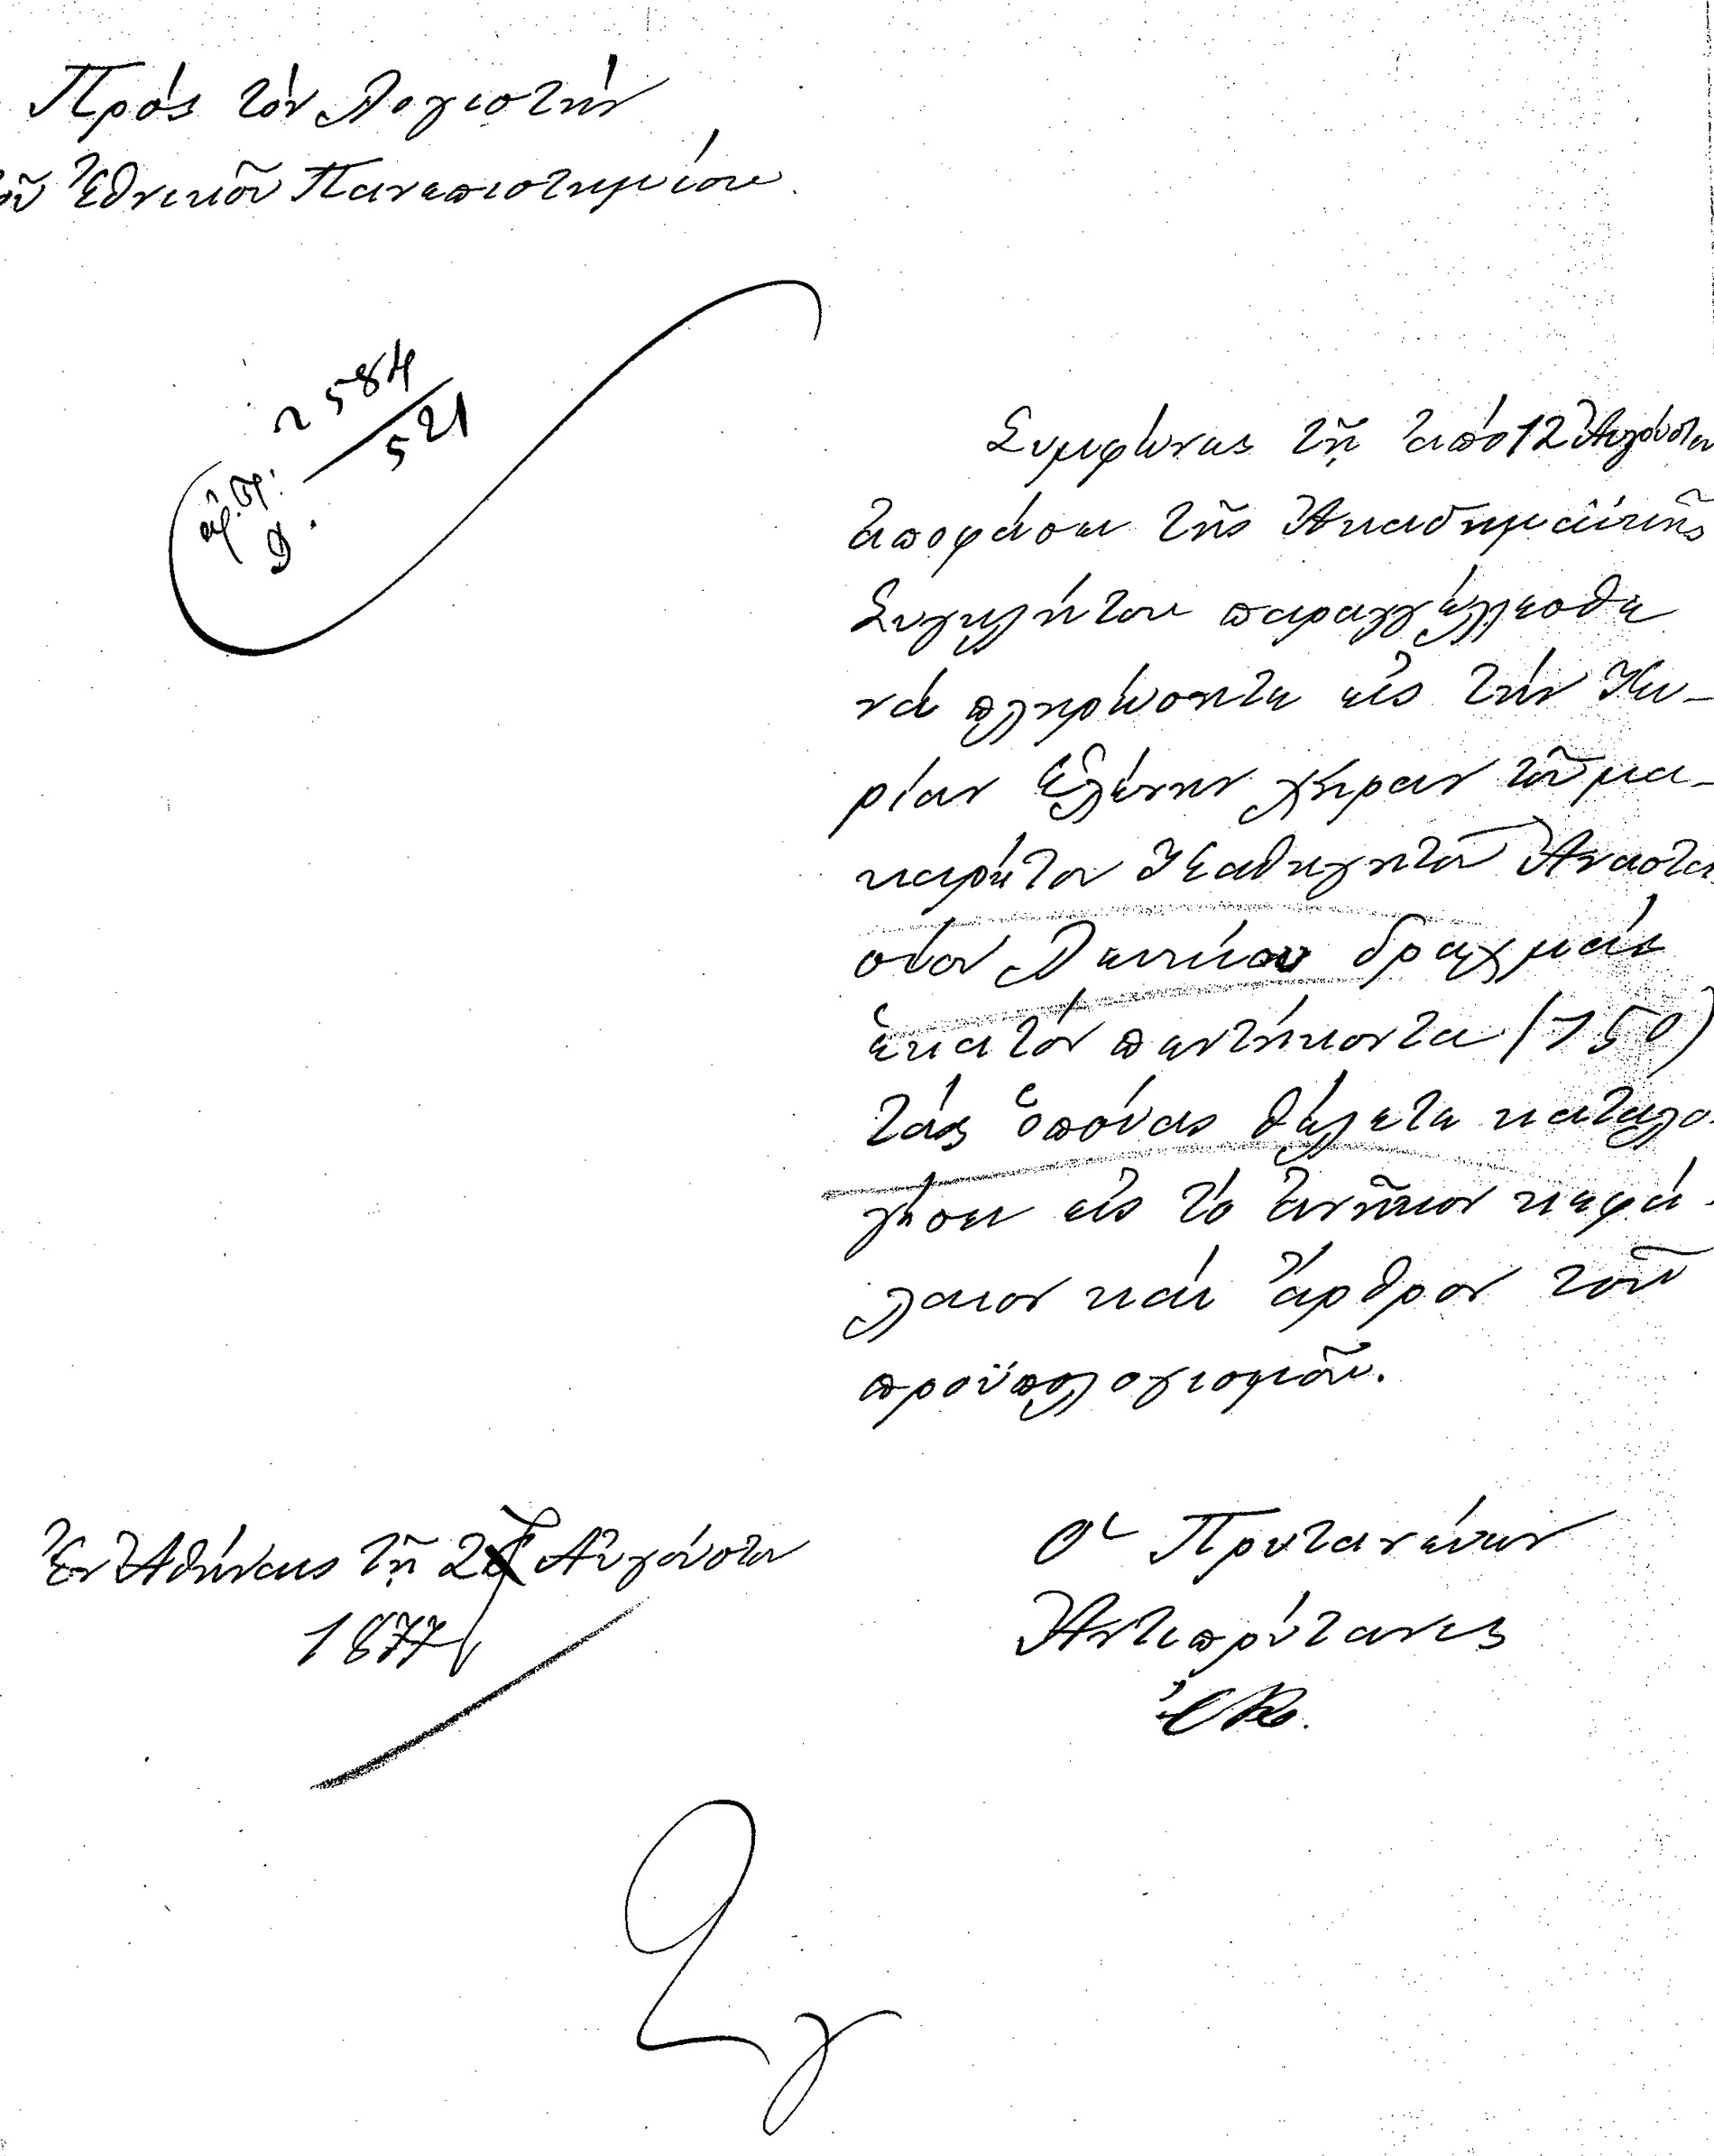 Πρός τόν Λογιστήν
τοῦ Ἐθνικοῦ Πανεπιστημίου.
2584
521
ἀρ. π.
Δ.
Συμφώνως τῇ ἀπό 12 Αὐγούστου
ἀποφάσει τῆς Ἀκαδημαϊκῆς
Συγκλήτου παραγγέλλεσθε
νά πληρώσητε εἰς τήν Κυ-
ρίαν Ἑλένην χήραν τοῦ μα-
καρίτου Καθηγητοῦ Ἀναστα
σίου Λευκίου δραχμάς
ἑκατόν πεντήκοντα (150)
τάς ὁποίας θέλετε καταλο
γήσει εἰς τό ἀνῆκον κεφά-
λαιον καί ἄρθρον τοῦ
προϋπολογισμοῦ.
Ἐν Ἀθήναις τῇ Αὐγούστου
1877
Ὁ Πρυτανεύων
Ἀντιπρύτανις